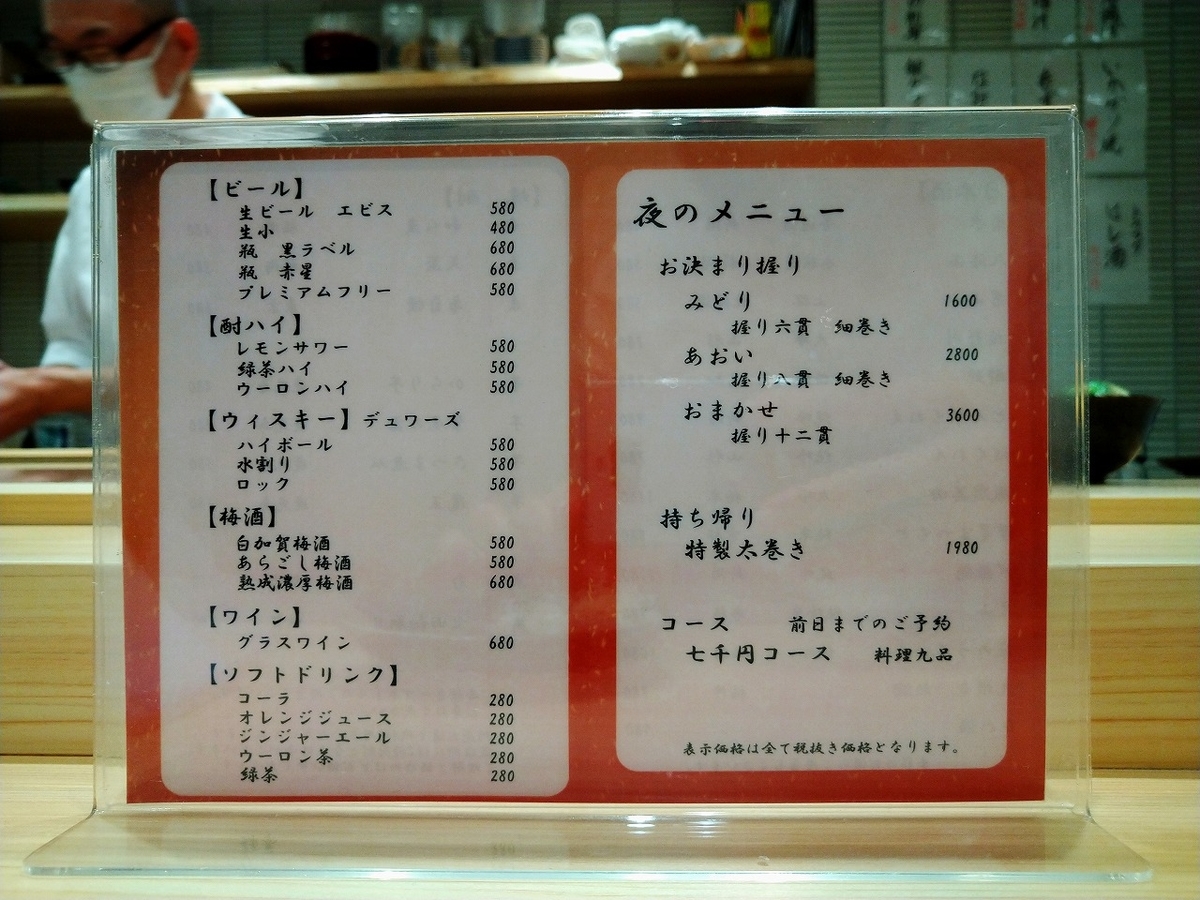 【ビール】
生ビール エビス 580
生小 480
瓶 黒ラベル 680
瓶 赤星 680
プレミアムフリー 580
【酎ハイ】
レモンサワー 580
緑茶ハイ 580
ウーロンハイ 580
【ウィスキー】デュワーズ
ハイボール 580
水割り 580
ロック 580
【梅酒】
白加賀梅酒 580
あらごし梅酒 580
熟成濃厚梅酒 680
【ワイン】
グラスワイン 680
【ソフトドリンク】
コーラ 280
オレンジジュース 280
ジンジャーエール 280
ウーロン茶 280
緑茶 280
夜のメニュー
お決まり握り
みどり 1600
握り六貫 細巻き
あおい 2800
握り八貫 細巻き
おまかせ 3600
握り十二貫
持ち帰り
特製太巻き 1980
コース 前日までのご予約
七千円コース 料理九品
表示価格は全て税抜き価格となります。